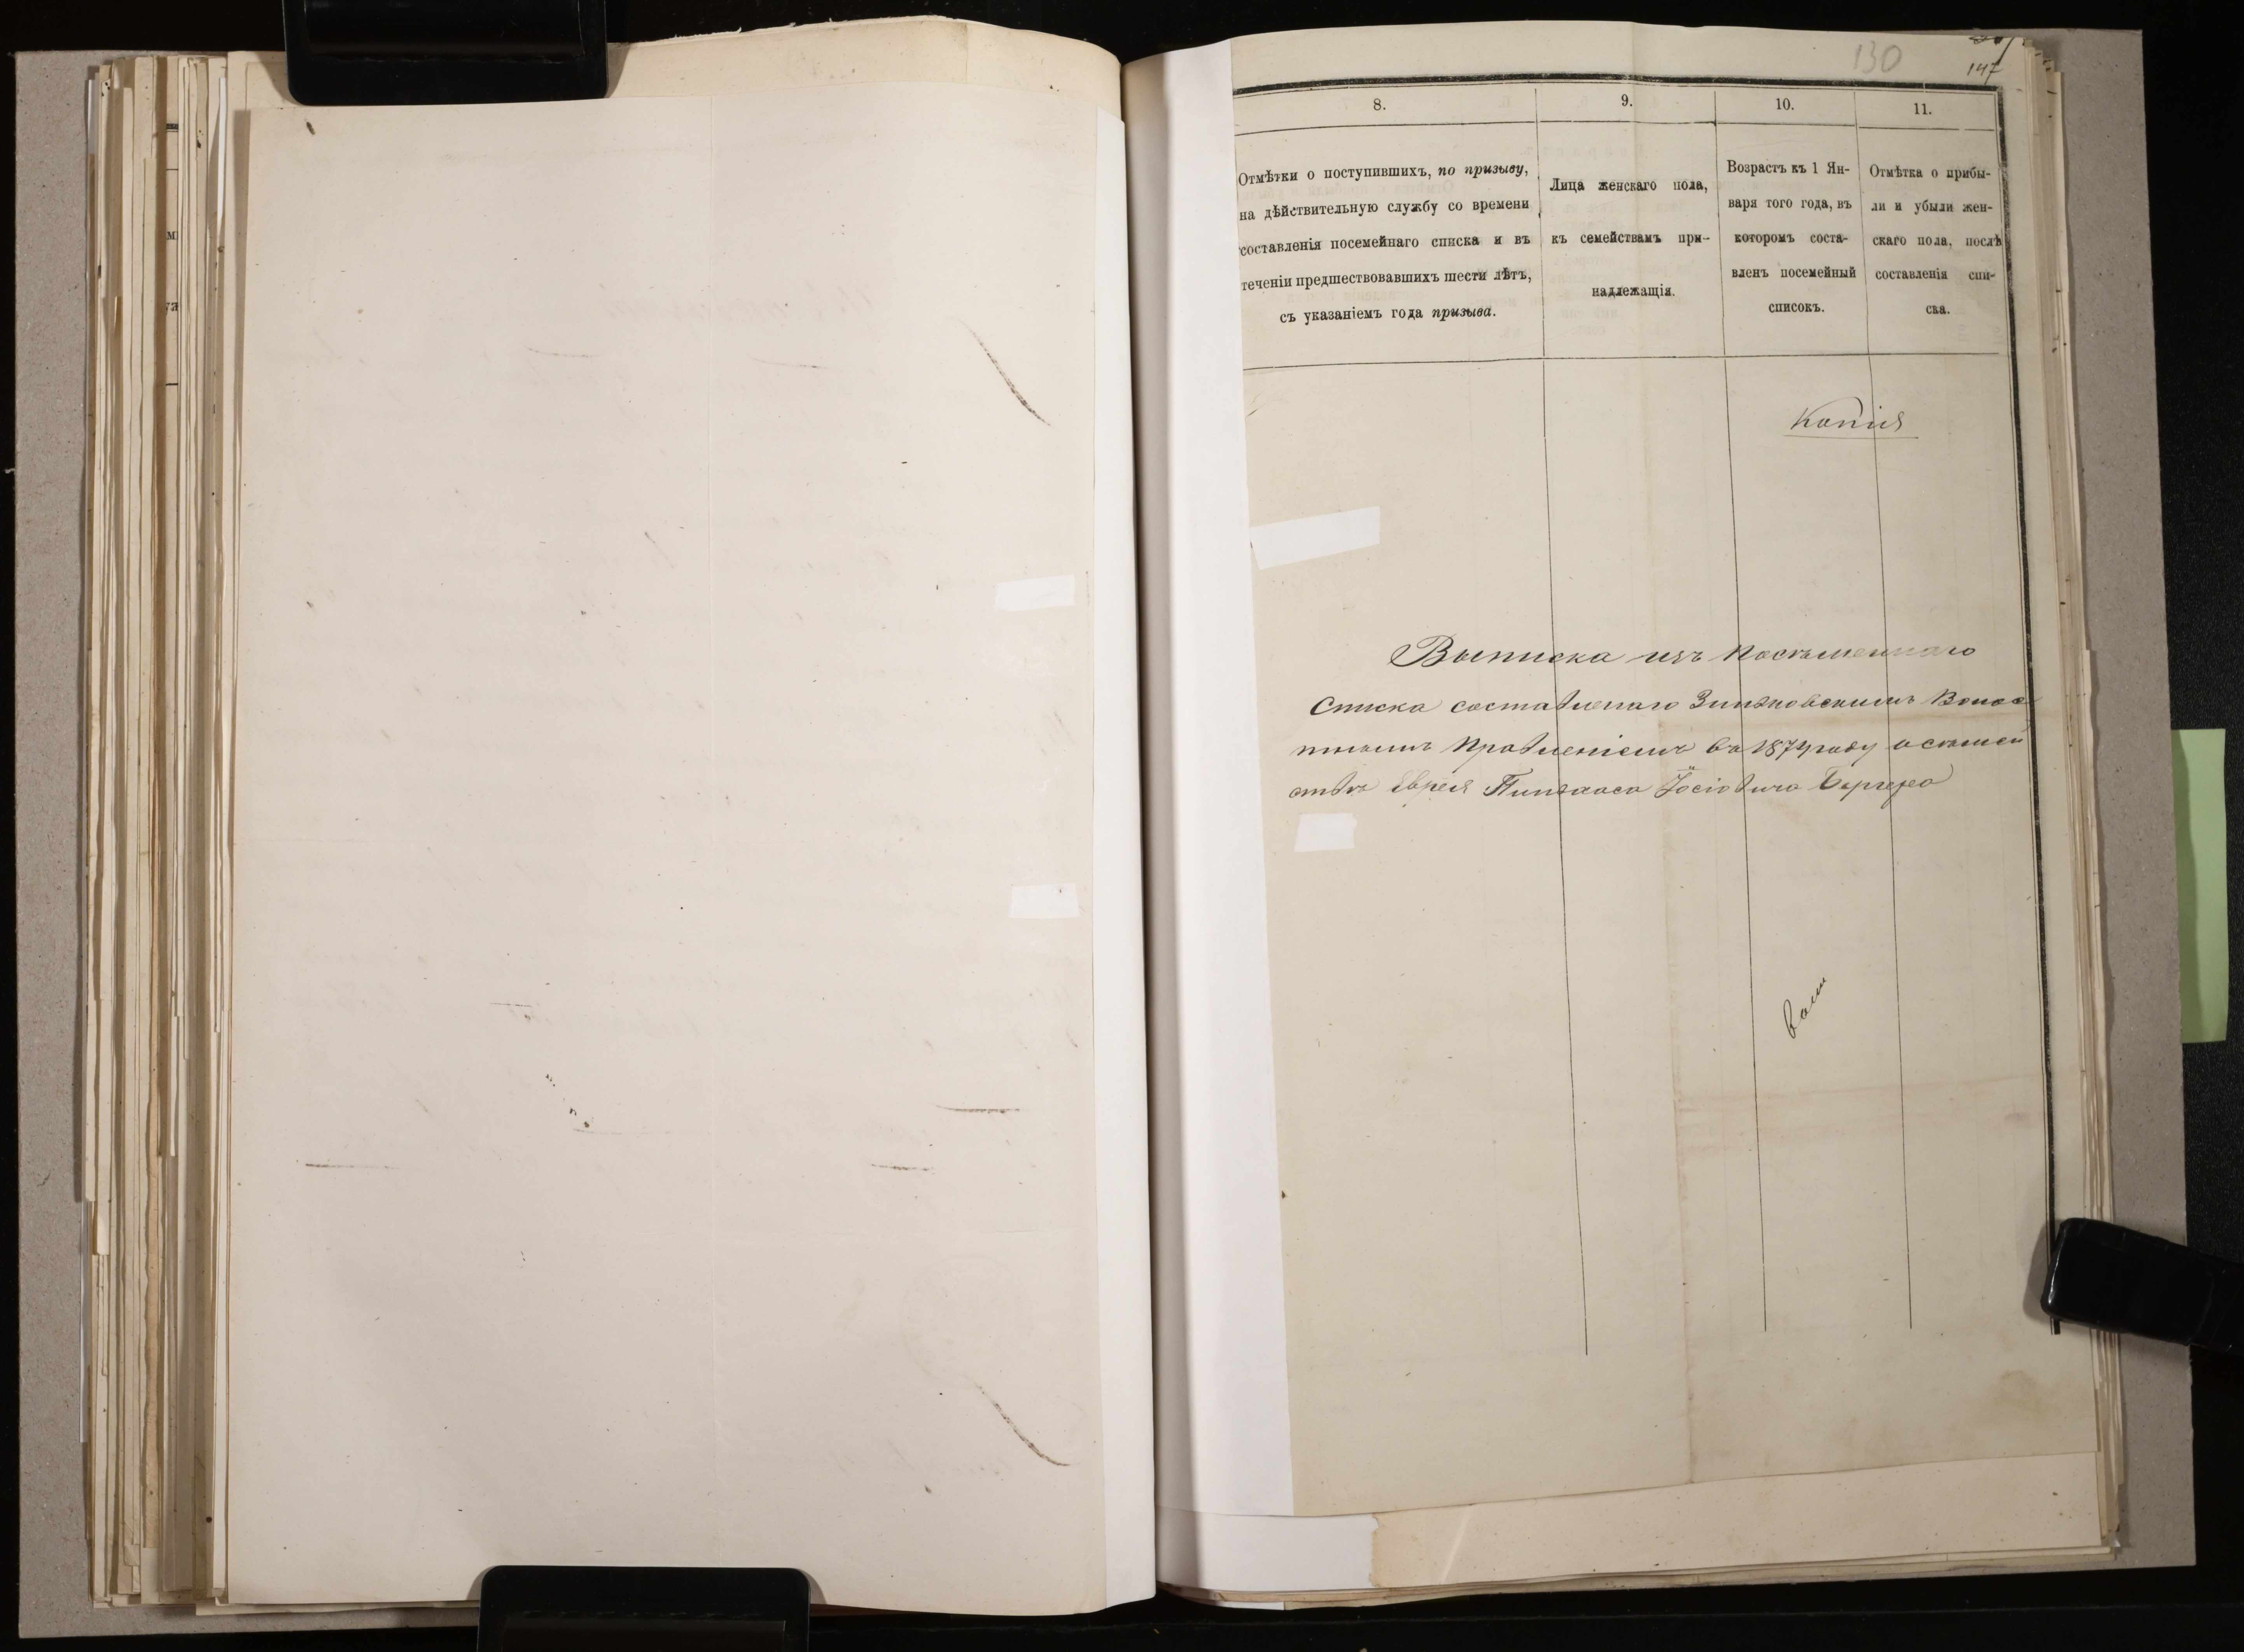 130
147
8.
9.
10.
11.
Отмѣтки о поступившихъ, по призыву,
на дѣйствительную службу со времени
составленія посемейнаго списка и въ
теченіи предшествовавшихъ шести лѣтъ,
съ указаніемъ года призыва.
Лица женскаго пола,
къ семействамъ при-
надлежащія.
Возрастъ къ 1 Ян-
варя того года, въ
которомъ соста-
вленъ посемейный
списокъ.
Отмѣтка о прибы-
ли и убыли жен-
скаго пола, послѣ
составленія спи-
ска.
Копія
Выписка изъ Посѣмейнаго
Списка составленаго Зиньковскимъ Волос
тнымъ Правленіемъ въ 1874 году о сѣмей
ствѣ Еврея Пинхаса Іосіовича Бергера